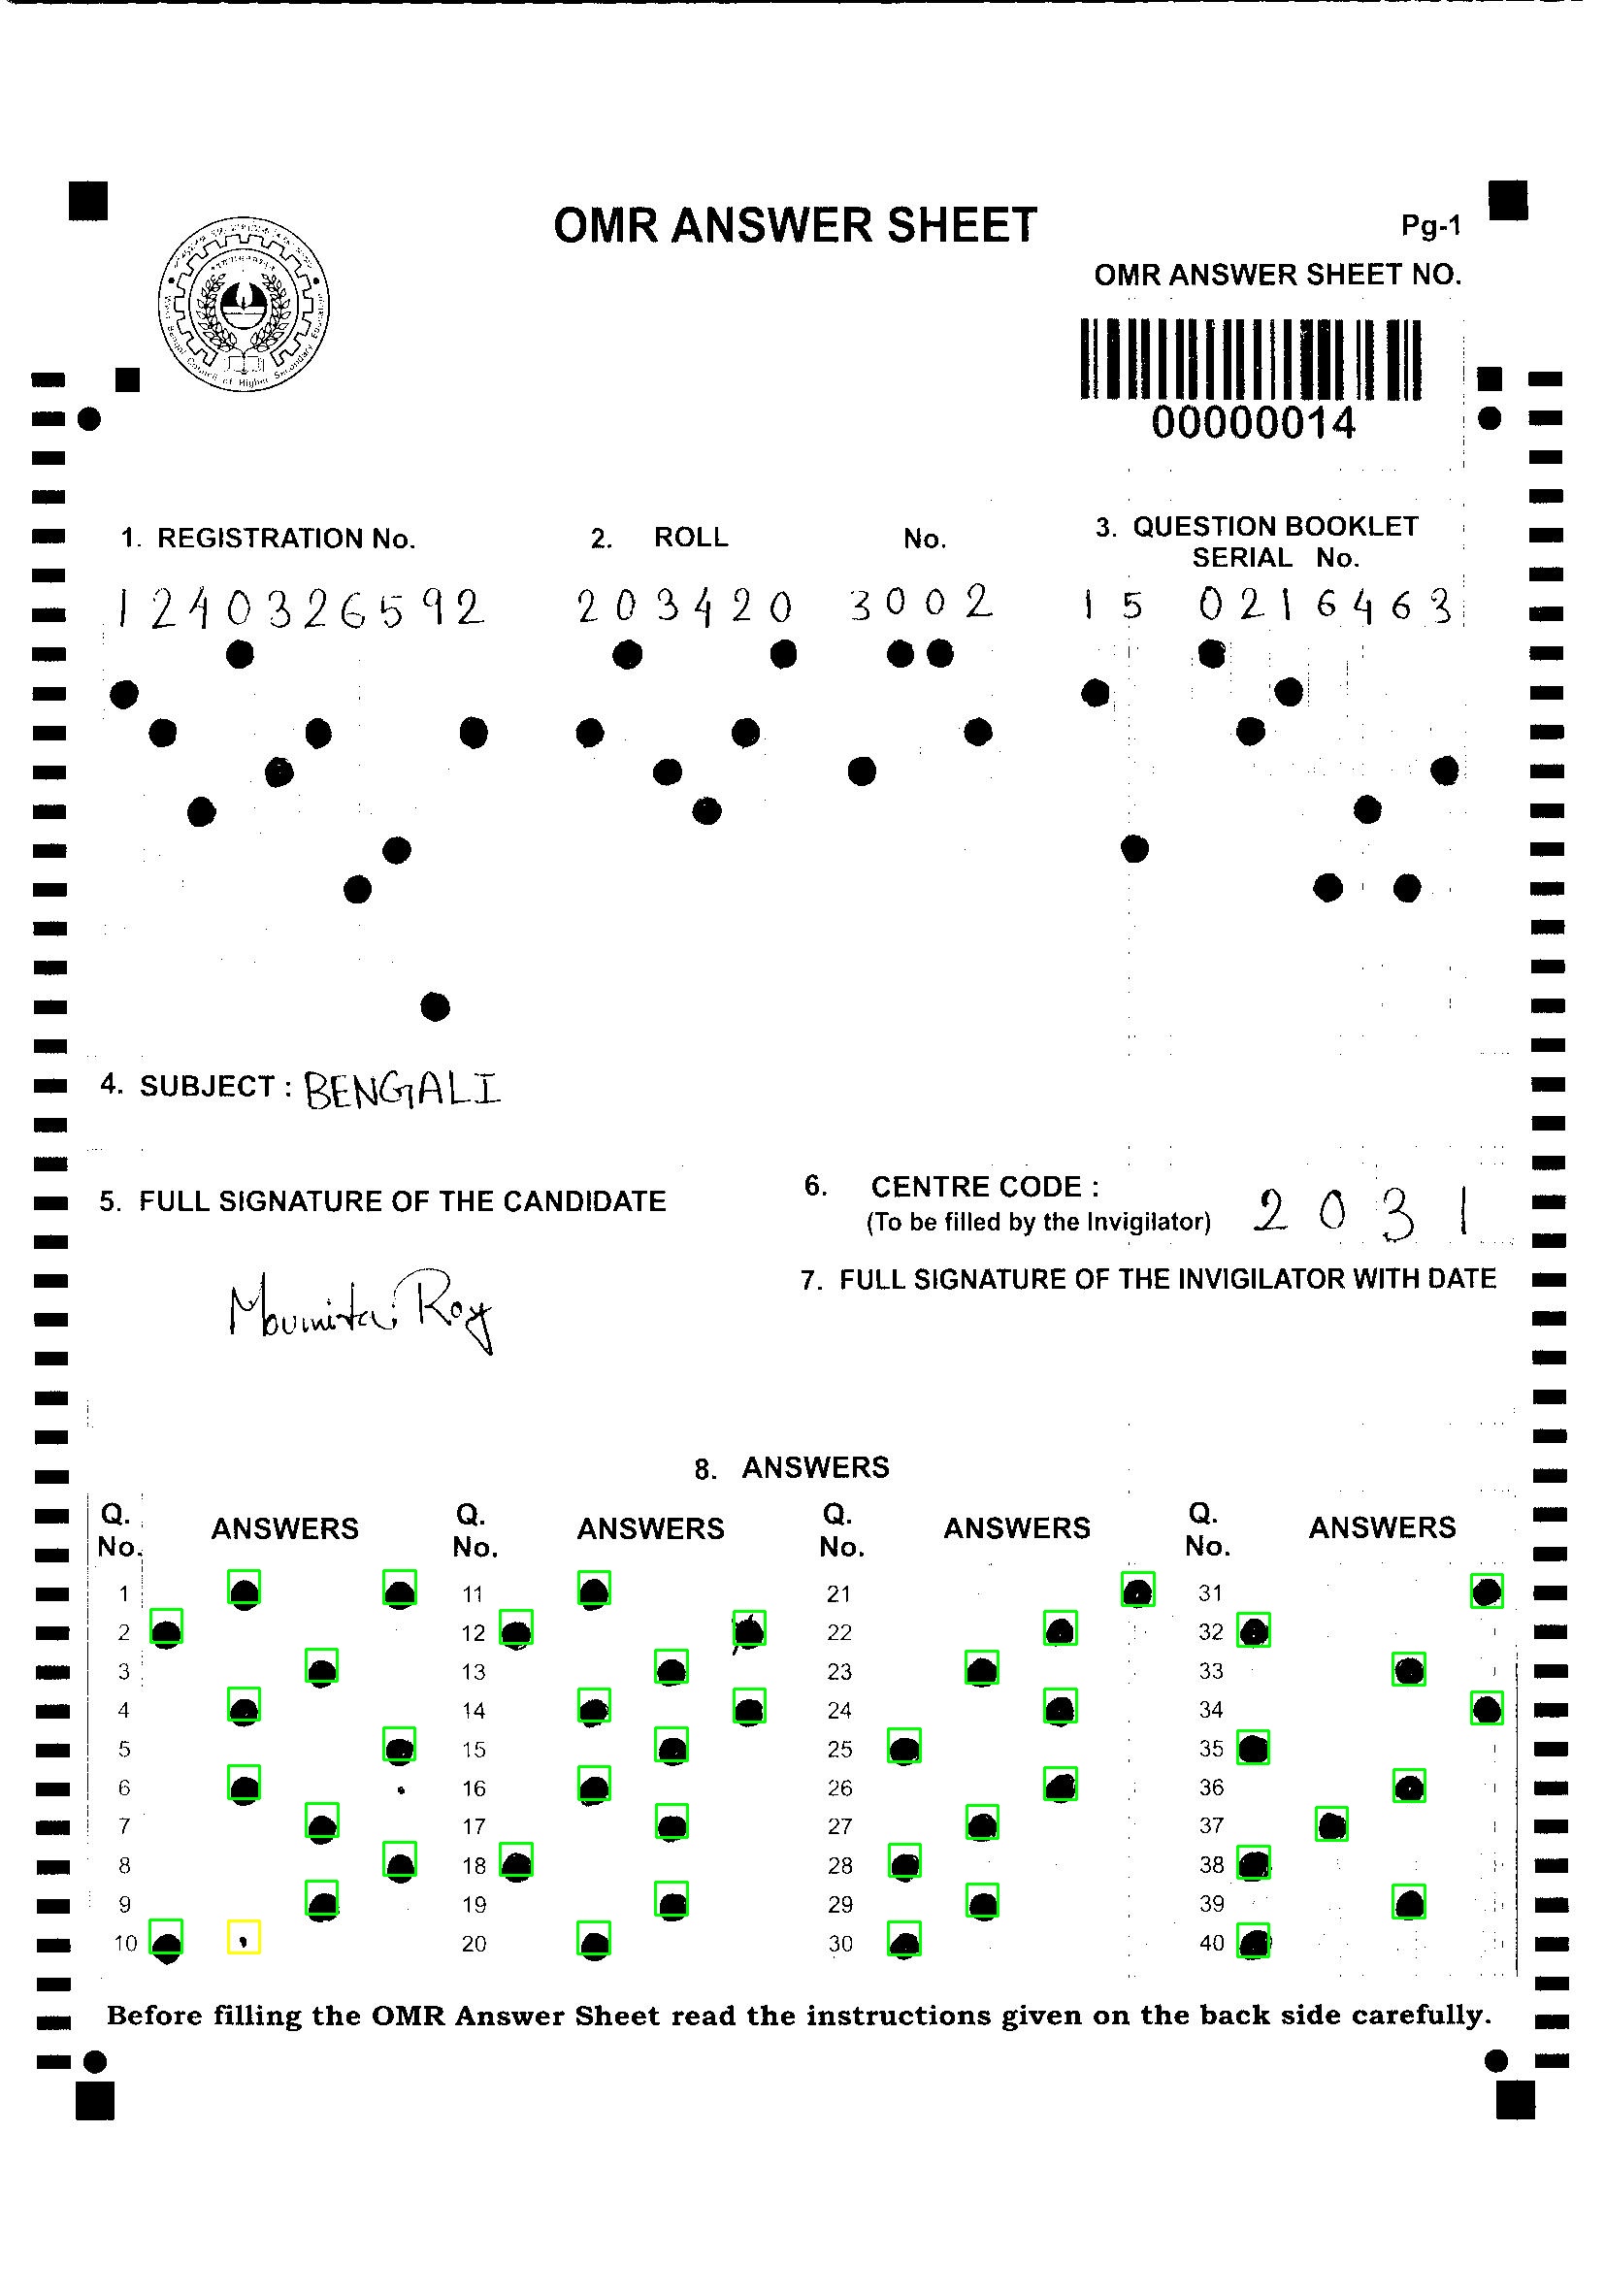 OMR ANSWER SHEET
Pg-1
OMR ANSWER SHEET NO.
00000014
West Bengal Council of Higher Secondary Education
1. REGISTRATION No.
2. ROLL No.
3. QUESTION BOOKLET
SERIAL No.
1240326592
203420 3002
15 0216463
4. SUBJECT : BENGALI
5. FULL SIGNATURE OF THE CANDIDATE
6. CENTRE CODE :
(To be filled by the Invigilator)
2031
Moumita Roy
7. FULL SIGNATURE OF THE INVIGILATOR WITH DATE
8. ANSWERS
Q. No. ANSWERS Q. No. ANSWERS Q. No. ANSWERS Q. No. ANSWERS
1 11 21 31
2 12 22 32
3 13 23 33
4 14 24 34
5 15 25 35
6 16 26 36
7 17 27 37
8 18 28 38
9 19 29 39
10 20 30 40
Before filling the OMR Answer Sheet read the instructions given on the back side carefully.